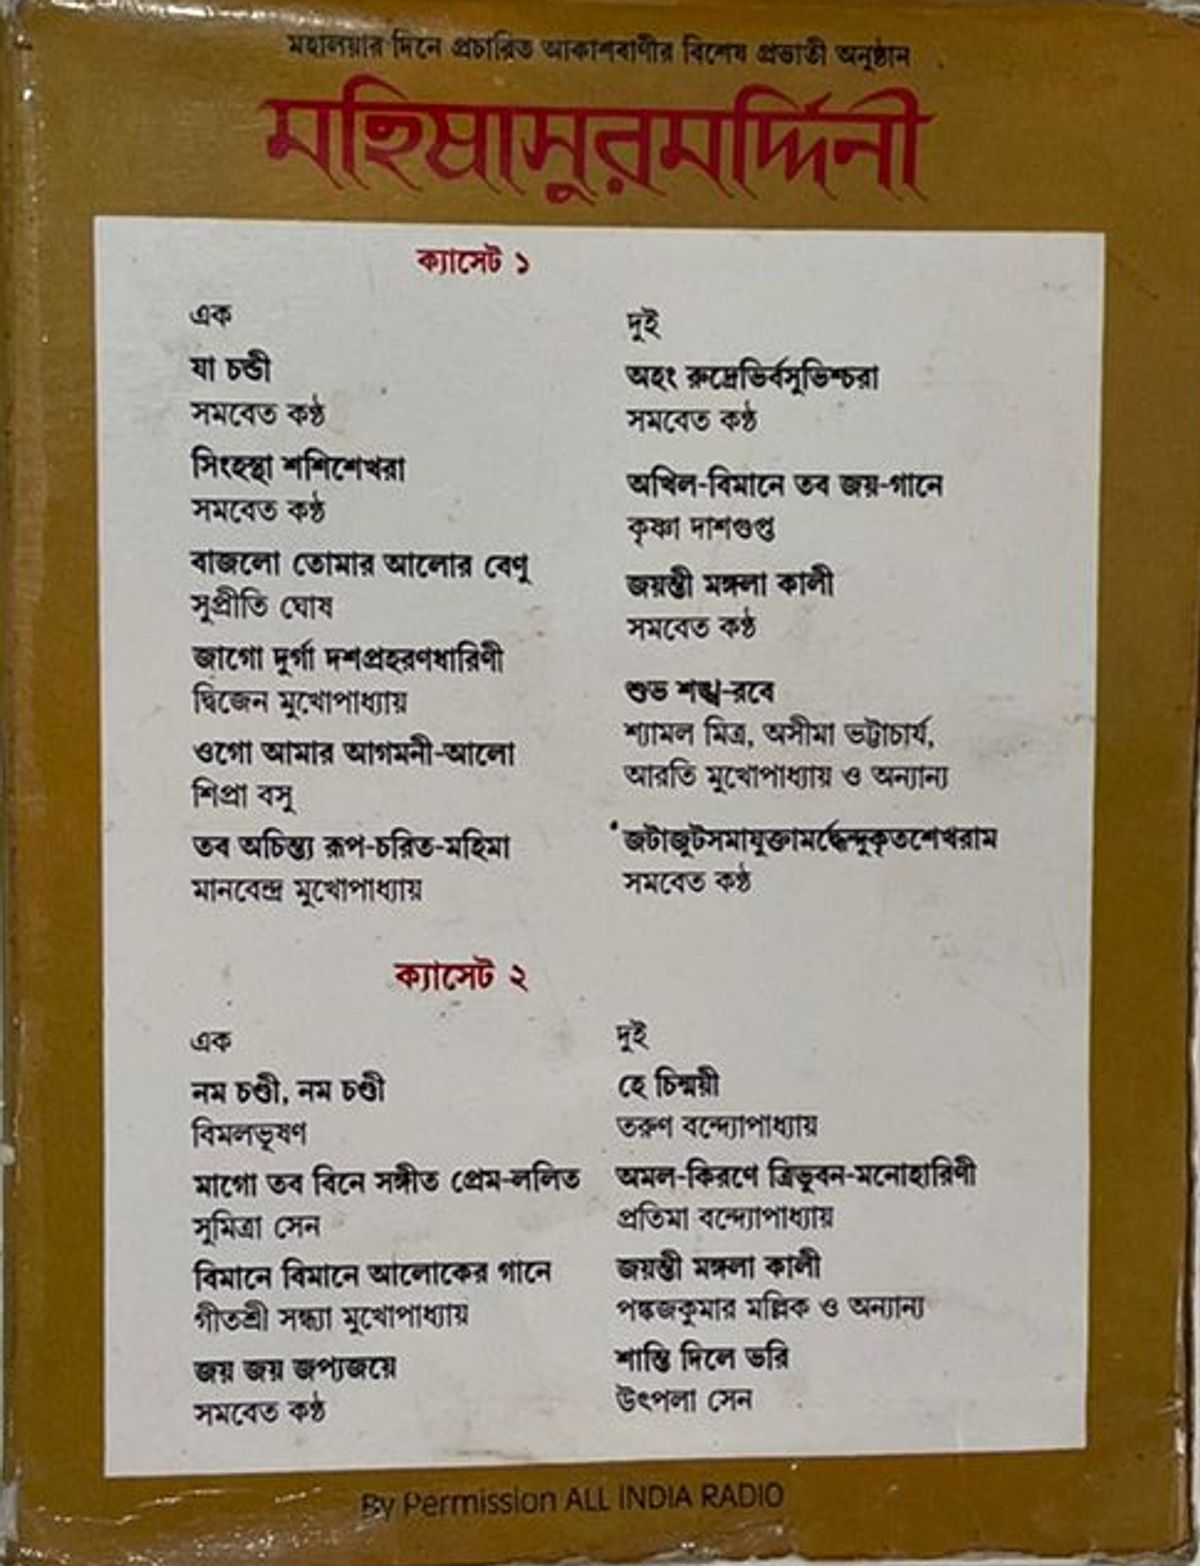 মহালয়ার দিনে প্রচারিত আকাশবাণীর বিশেষ প্রভাতী অনুষ্ঠান
মহিষাসুরমর্দ্দিনী
ক্যাসেট ১
এক
যা চন্ডী
সমবেত কণ্ঠ
সিংহস্থা শশিশেখরা
সমবেত কণ্ঠ
বাজলো তোমার আলোর বেণু
সুপ্রীতি ঘোষ
জাগো দুর্গা দশপ্রহরণধারিণী
দ্বিজেন মুখোপাধ্যায়
ওগো আমার আগমনী-আলো
শিপ্রা বসু
তব অচিন্ত্য রূপ-চরিত-মহিমা
মানবেন্দ্র মুখোপাধ্যায়
দুই
অহং রুদ্রেভির্বসুভিশ্চরা
সমবেত কণ্ঠ
অখিল-বিমানে তব জয়-গানে
কৃষ্ণা দাশগুপ্ত
জয়ন্তী মঙ্গলা কালী
সমবেত কণ্ঠ
শুভ শঙ্খ-রবে
শ্যামল মিত্র, অসীমা ভট্টাচার্য,
আরতি মুখোপাধ্যায় ও অন্যান্য
জটাজুটসমাযুক্তামর্দ্ধেন্দুকৃতশেখরাম
সমবেত কণ্ঠ
ক্যাসেট ২
এক
নম চণ্ডী, নম চণ্ডী
বিমলভূষণ
মাগো তব বিনে সঙ্গীত প্রেম-ললিত
সুমিত্রা সেন
বিমানে বিমানে আলোকের গানে
গীতশ্রী সন্ধ্যা মুখোপাধ্যায়
জয় জয় জপ্যজয়ে
সমবেত কণ্ঠ
দুই
হে চিন্ময়ী
তরুণ বন্দ্যোপাধ্যায়
অমল-কিরণে ত্রিভুবন-মনোহারিণী
প্রতিমা বন্দ্যোপাধ্যায়
জয়ন্তী মঙ্গলা কালী
পঙ্কজকুমার মল্লিক ও অন্যান্য
শান্তি দিলে ভরি
উৎপলা সেন
By Permission ALL INDIA RADIO